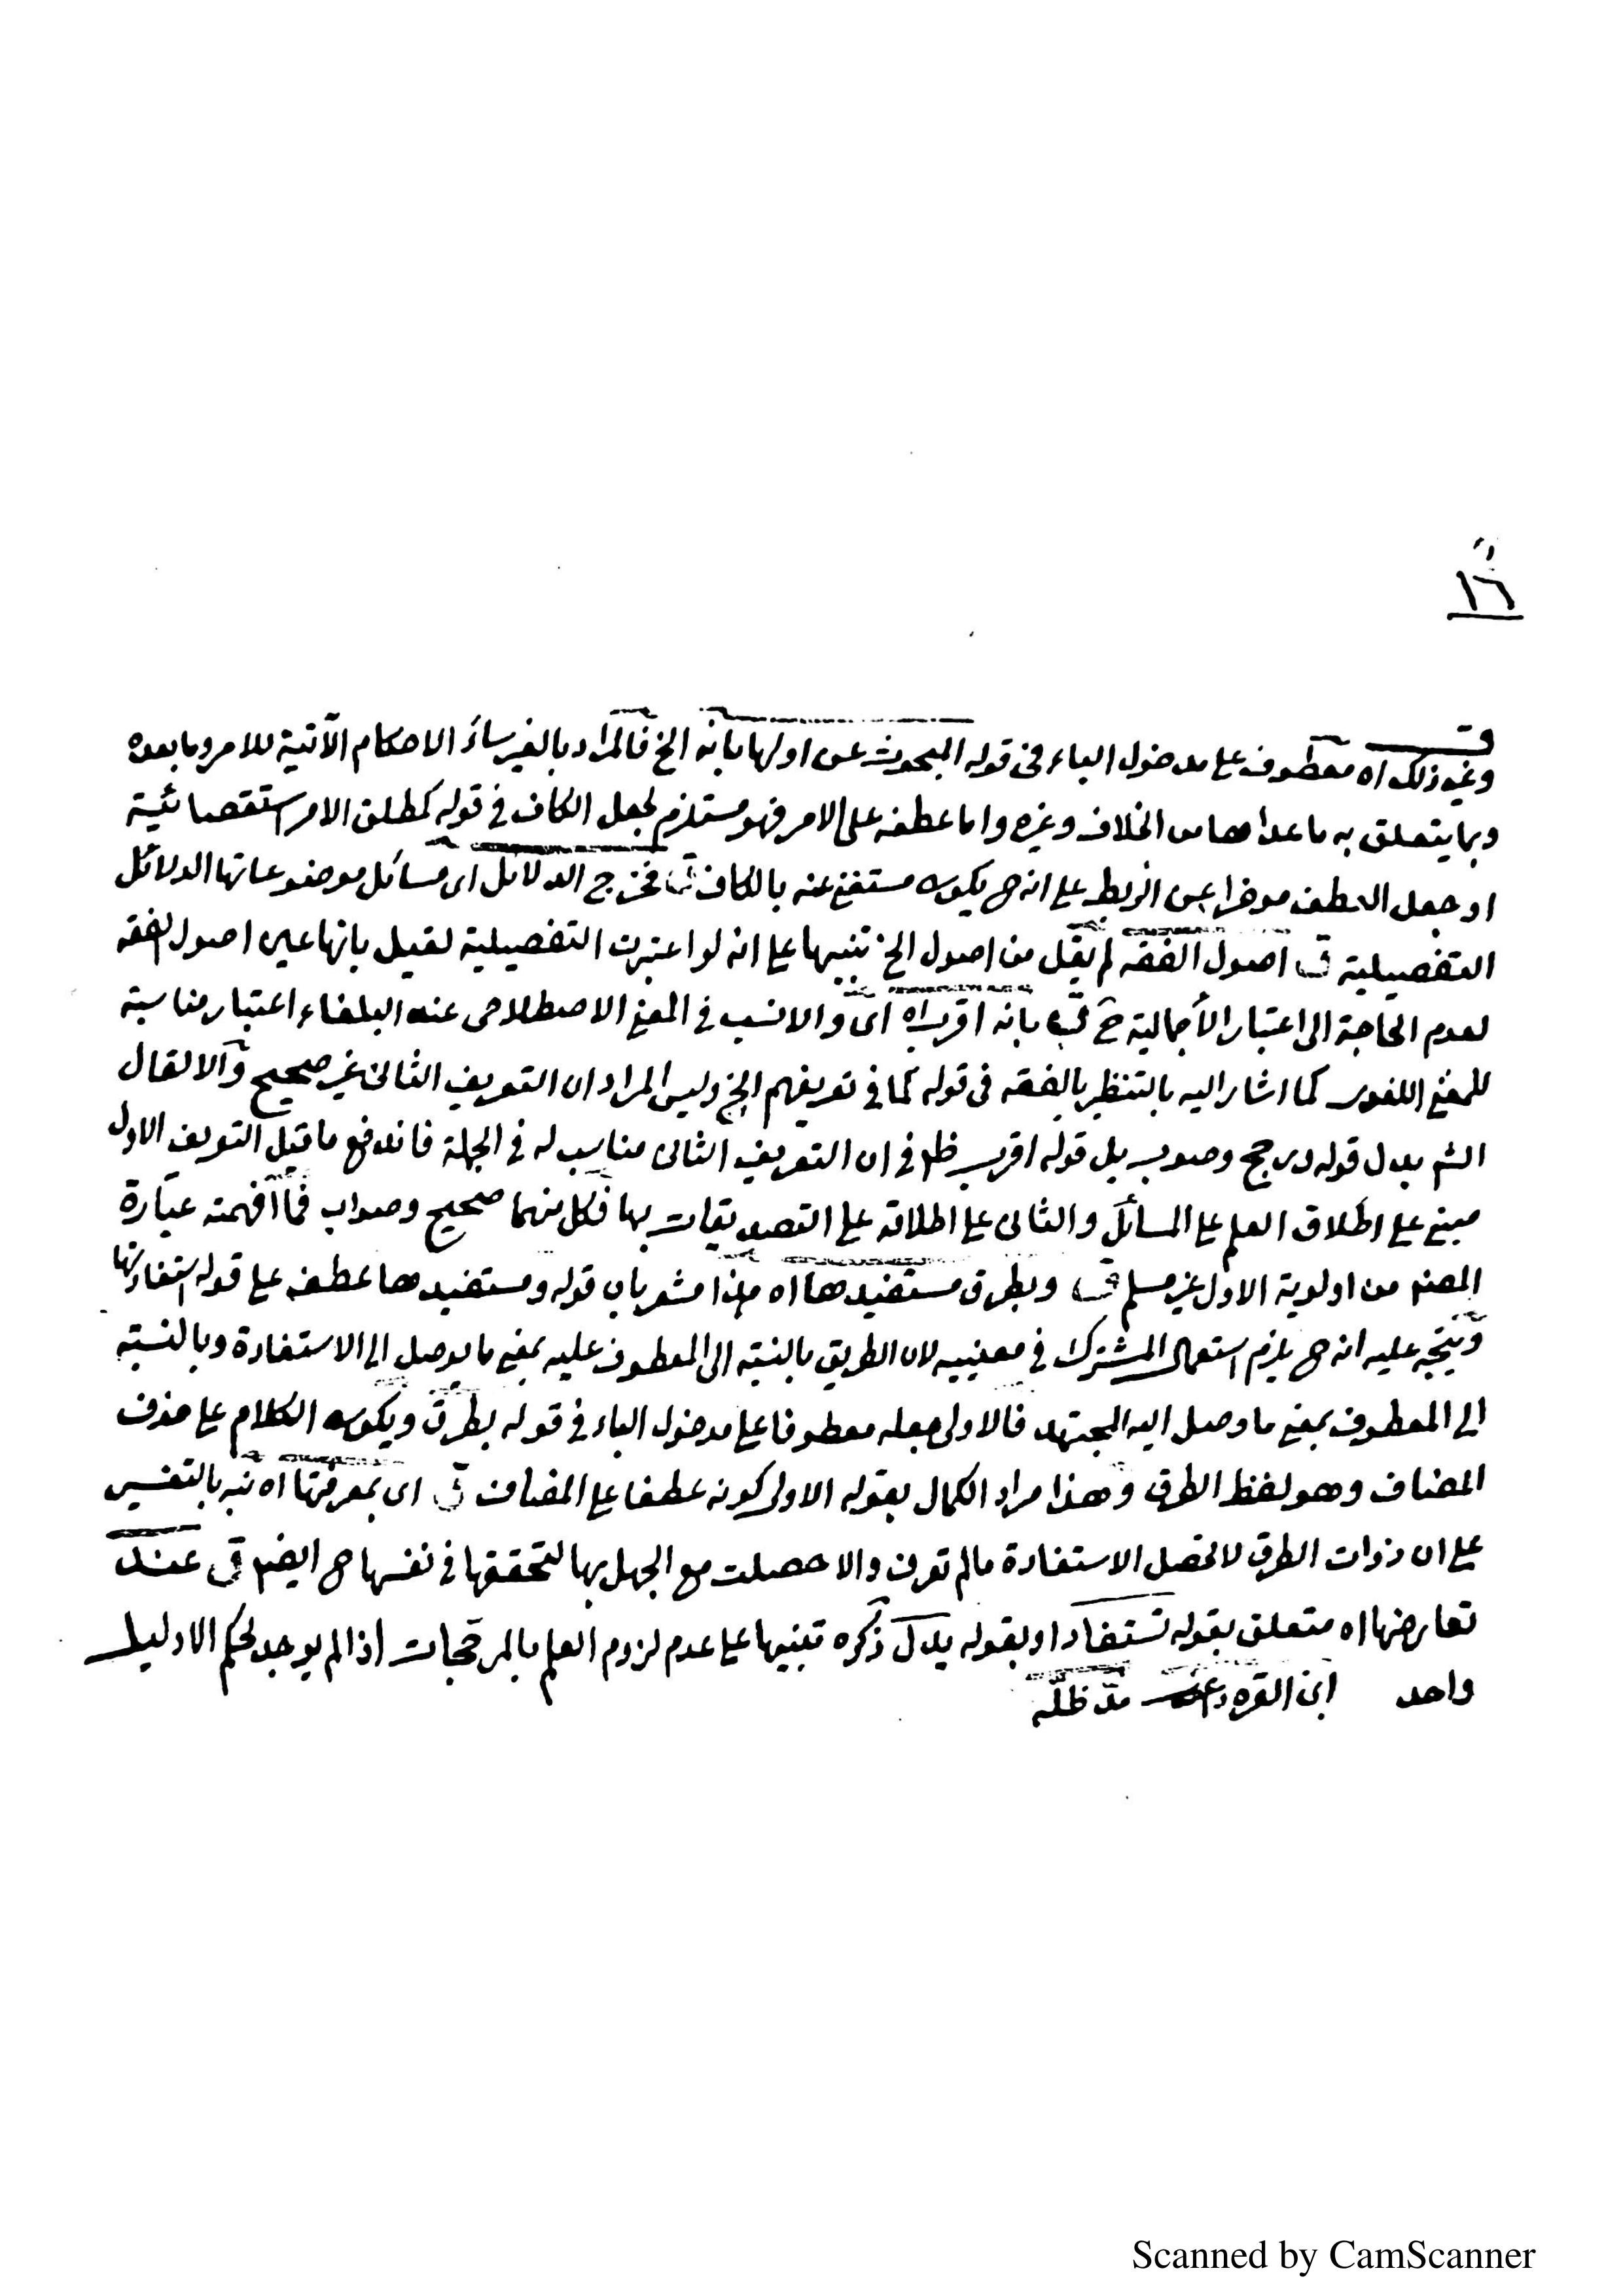 ١٦
ق
وغير ذلك اه معطوف على مدخول الباء فى قوله المبحوث عن اولها بانه الخ فالمراد بالغير سائر الاحكام الآتية للامر وما بعده
وبما يتعلق به ما عداهما من الخلاف وغيره واما عطفه على الامر فهو مستلزم لجعل الكاف فى قوله كمطلق الامر استقصائية
او جعل العطف مؤخرا عن الربط على انه ح يكون مستغنى عنه بالكاف ق فخرج الدلائل اى مسائل موضوعاتها الدلائل
التفصيلية ق اصول الفقه لم يقل من اصول الخ تنبيها على انه لو اعتبرت التفصيلية لقيل بانها عين اصول الفقه
لعدم الحاجة الى اعتبار الأجمالية ح ق بانه اقرب اه اى والانسب فى المعنى الاصطلاحى عند البلغاء اعتبار مناسبة
للمعنى اللغوى كما اشار اليه بالتنظير بالفقه فى قوله كما فى تعريفهم الخ وليس المراد ان التعريف الثانى غير صحيح والا لقال
الش بدل قوله ورجح وصوب بل قوله اقرب ظ فى ان التعريف الثانى مناسب له فى الجملة فاندفع ما قيل التعريف الاول
مبنى على اطلاق العلم على المسائل والثانى على اطلاقه على التصديقات بها فكل منهما صحيح وصواب فما أفهمته عبارة
المصنف من اولوية الاول غير مسلم ق وبطرق مستفيدها اه هذا مشعر بان قوله ومستفيدها عطف على قوله استفادتها
ويتجه عليه انه ح يلزم استعمال المشترك فى معنييه لان الطريق بالنسبة الى المعطوف عليه بمعنى ما يوصل الى الاستفادة وبالنسبة
الى المعطوف بمعنى ما وصل اليه المجتهد فالاولى جعله معطوفا على مدخول الباء فى قوله بطرق ويكون الكلام على حذف
المضاف وهو لفظ الطرق وهذا مراد الكمال بقوله الاولى كونه عطفا على المضاف ق اى بمعرفتها اه نبه بالتفسير
على ان ذوات الطرق لا تحصل الاستفادة ما لم تعرف والا حصلت مع الجهل بها لتحققها فى نفسها ح ايضا ق عند
تعارضها اه متعلق بقوله تستفاد او بقوله يدل ذكره تنبيها على عدم لزوم العلم بالمرجحات اذا لم يوجد لحكم الا دليل
واحد ابن القره داغى مد ظله
Scanned by CamScanner